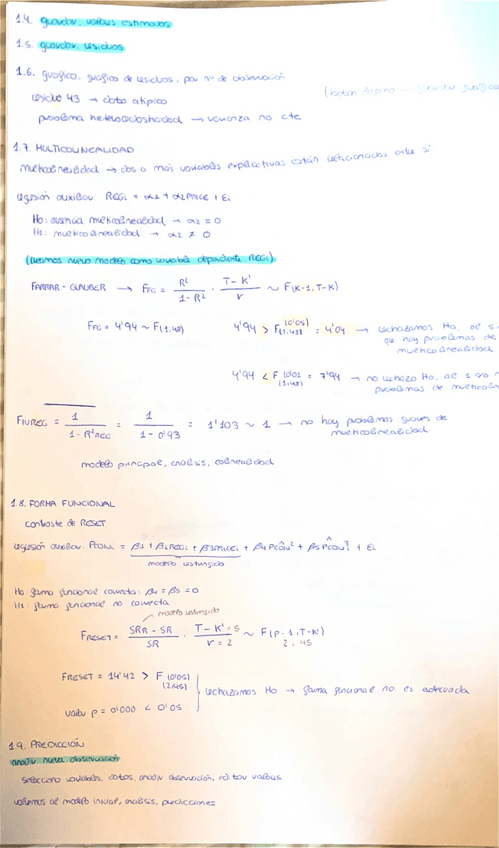 1.4. guardar, valores estimados
1.5. guardar, residuos
1.6. gráfico, gráfico de residuos, por nº de observación
(botón derecho → guardar gráfico
residuo 43 → dato atípico
problema heterocedasticidad → varianza no cte
1.7. MULTICOLINEALIDAD
multicolinealidad → dos o más variables explicativas están relacionadas entre sí
regresión auxiliar REGi = α1 + α2PRICE + Ei
H0: ausencia multicolinealidad → α2 = 0
H1: multicolinealidad → α2 ≠ 0
(creamos nuevo modelo como variable dependiente REGi)
FARRAR-GLAUBER → FFG = R² / 1-R² · T-K' / r ~ F(K-1, T-K)
FFG = 4'94 ~ F(1,48)
4'94 > F(0'05)(1,48) = 4'04 → rechazamos H0, al 5
que hay problemas de
multicolinealidad
4'94 < F(0'01)(1,48) = 7'94 → no rechazo H0, al 1% no
problemas de multicolin
FIVREG = 1 / 1-R²REG = 1 / 1-0'93 = 1'103 ~ 1 → no hay problemas graves de
multicolinealidad
modelo principal, análisis, colinealidad
1.8. FORMA FUNCIONAL
contraste de RESET
regresión auxiliar: PCONi = β1 + β2REGi + β3PRICEi + β4PCÔN² + β5PCÔN³ + Ei
modelo restringido
H0 forma funcional correcta: β4 = β5 = 0
H1: forma funcional no correcta
modelo restringido
FRESET = SRR - SR / SR · T-K' = 5 / r = 2 ~ F(P-1, T-K')
2, 45
FRESET = 14'42 > F(0'05)(2,45)
rechazamos H0 → forma funcional no es adecuada
valor p = 0'000 < 0'05
1.9. PREDICCIÓN
añadir nueva observación
selecciono variables, datos, añadir observación, editar valores
volvemos al modelo inicial, análisis, predicciones